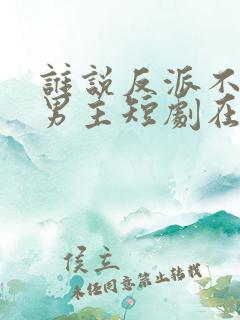 誰說反派不
男主短劇在
侯立
未經同意禁止轉載